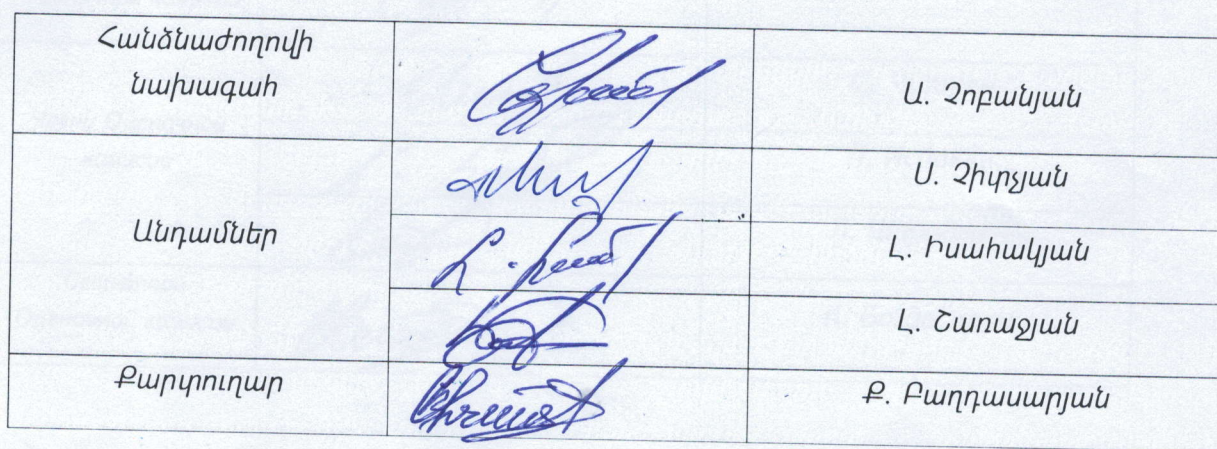 Հանձնաժողովի
նախագահ
Ա. Չոբանյան
Ս. Չիտչյան
Անդամներ
Լ. Իսահակյան
Լ. Շառաջյան
Քարտուղար
Ք. Բաղդասարյան